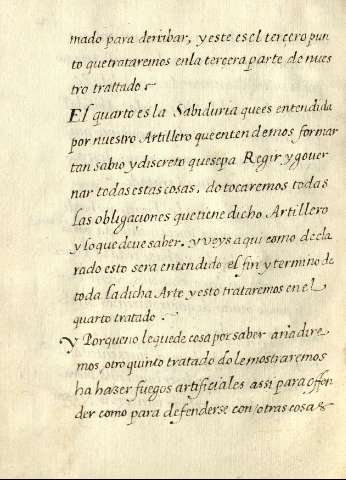 mado para derribar, y este es el terçero pun
to que trataremos en la tercera parte de nues
tro trattado
El quarto es la Sabiduria que es entendida
por nuestro Artillero que entendemos formar
tan sabio y discreto que sepa Regir, y gouer
nar todas estas cosas, do tocaremos todas
las obligaçiones que tiene dicho Artillero
y lo que deue saber. y veys aqui como decla
rado esto sera entendido el fin y termino de
toda la dicha Arte y esto trataremos en el
quarto tratado.
Y Porque no le quede cosa por saber añadire
mos, otro quinto tratado do le mostraremos
ha hazer fuegos artifiçiales assi para offen
der como para defenderse con otras cosas